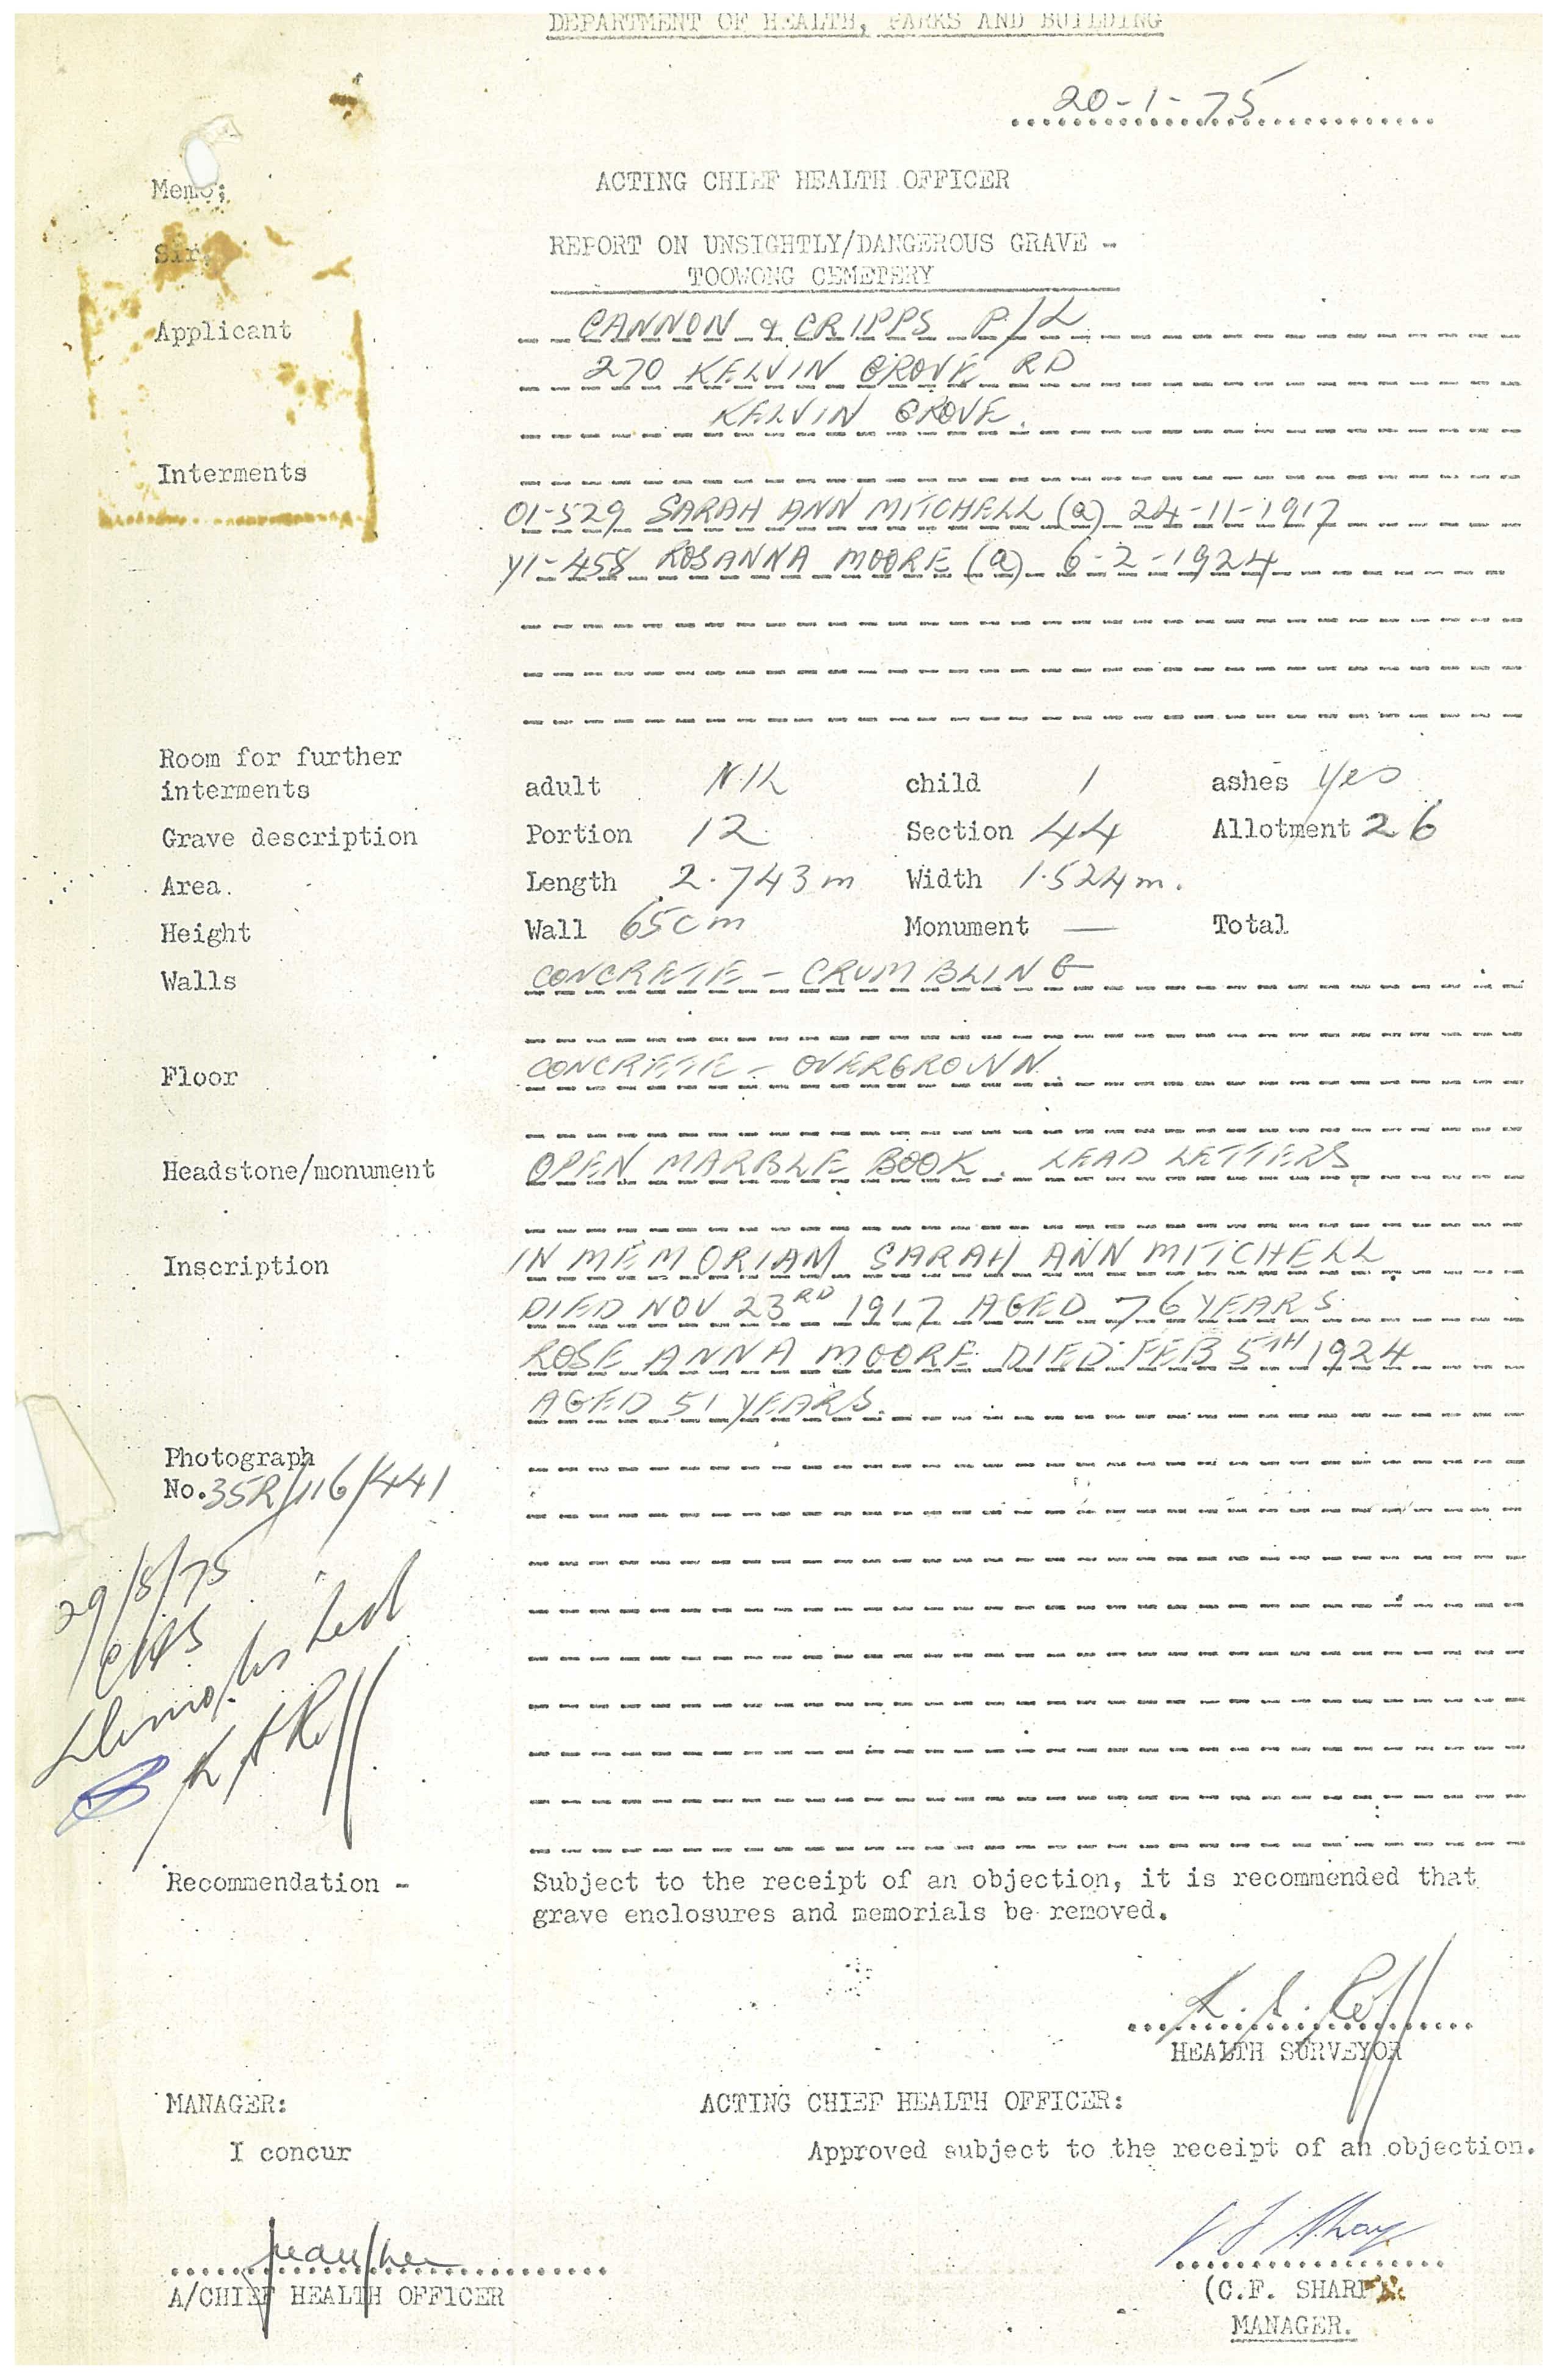 DEPARTMENT OF HEALTH, PARKS AND BUILDING
20-1-75
Memo; ACTING CHIEF HEALTH OFFICER
Sir,
REPORT ON UNSIGHTLY/DANGEROUS GRAVE -
TOOWONG CEMETERY
Applicant CANNON & CRIPPS P/L
270 KELVIN GROVE RD
KELVIN GROVE.
Interments
01-529 SARAH ANN MITCHELL (a) 24-11-1917
Y1-458 ROSANNA MOORE (a) 6-2-1924
Room for further
interments adult NIL child 1 ashes yes
Grave description Portion 12 Section 44 Allotment 26
Area. Length 2.743m Width 1.524m.
Height Wall 65cm Monument — Total
Walls CONCRETE - CRUMBLING
Floor CONCRETE - OVERGROWN.
Headstone/monument OPEN MARBLE BOOK. LEAD LETTERS
Inscription IN MEMORIAM SARAH ANN MITCHELL
DIED NOV 23RD 1917 AGED 76 YEARS
ROSE ANNA MOORE DIED FEB 5TH 1924
AGED 51 YEARS.
Photograph
No. 35R/116/441
29/8/75
Recommendation - Subject to the receipt of an objection, it is recommended that
grave enclosures and memorials be removed.
HEALTH SURVEYOR
MANAGER: ACTING CHIEF HEALTH OFFICER:
I concur Approved subject to the receipt of an objection.
A/CHIEF HEALTH OFFICER (C.F. SHARPE
MANAGER.